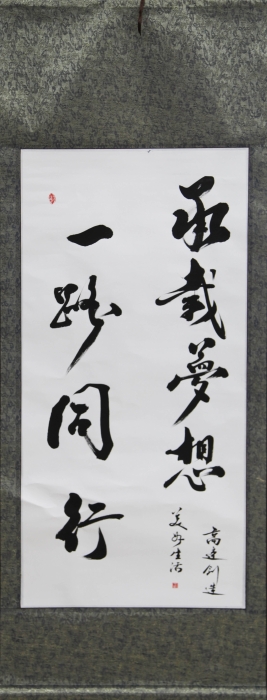 承载梦想
一路同行
高速创造
美好生活